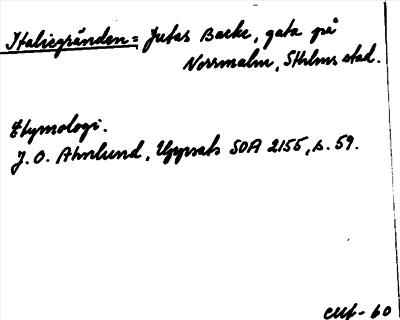 Italiegränden = Jutas Backe, gata på
Norrmalm, Sthlms stad.
Etymologi.
J. O. Ahnlund, Uppsats SOA 2155, s. 59.
CUf - 60